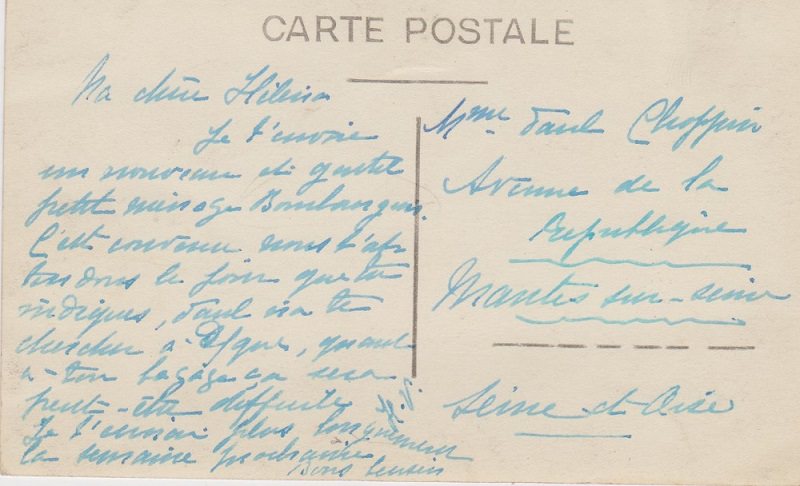 CARTE POSTALE
Ma chère
Je t'envoie
un nouveau et gentil
petit message Boulangeois.
C'est convenu nous t'at
tendons le jour que tu
indiques, Paul ira te
chercher à quant
à ton bagage ca sera
peut-être difficile
Je t'envoie plus longuement
la semaine prochaine
Bons
Mme Paul Choppin
Avenue de la
République
Mantes sur-Seine
Seine et Oise